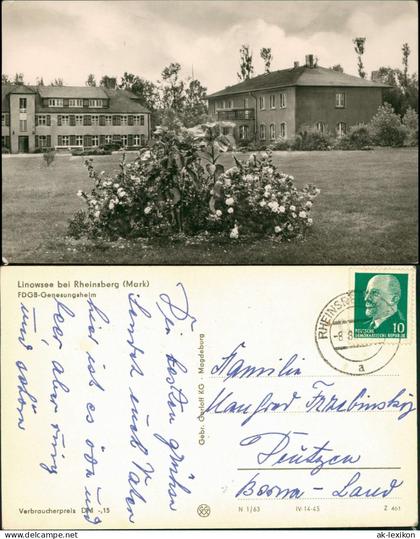 Linowsee bei Rheinsberg (Mark)
FDGB-Genesungsheim
Die besten Grüße
sendet euch Vater
hier ist es öde und
leer, aber ruhig
und schön
Verbraucherpreis DM -,15
Gebr. Garloff KG · Magdeburg
RHEINSBERG
-8.8
a
10
DEUTSCHE DEMOKRATISCHE REPUBLIK
Familie
Manfred
Deutzen
Borna-Land
N 1/63
IV-14-45
Z 461
ak-lexikon.de